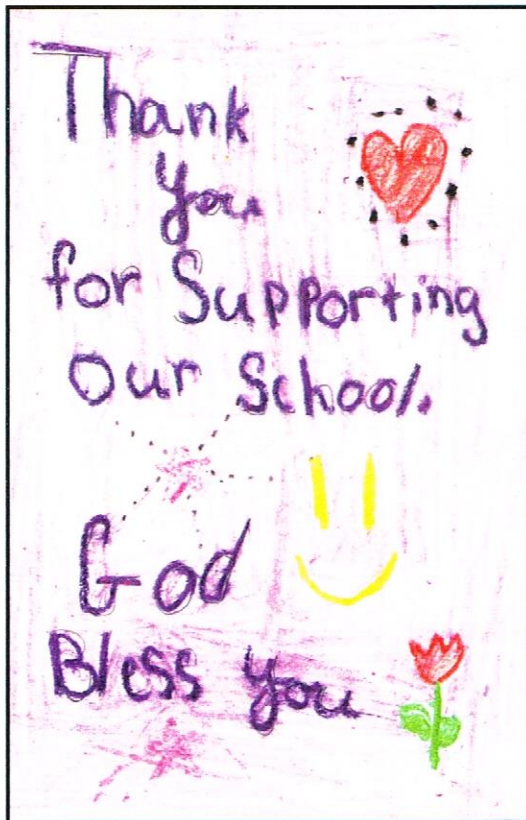 Thank
you
for Supporting
Our School.
God
Bless you